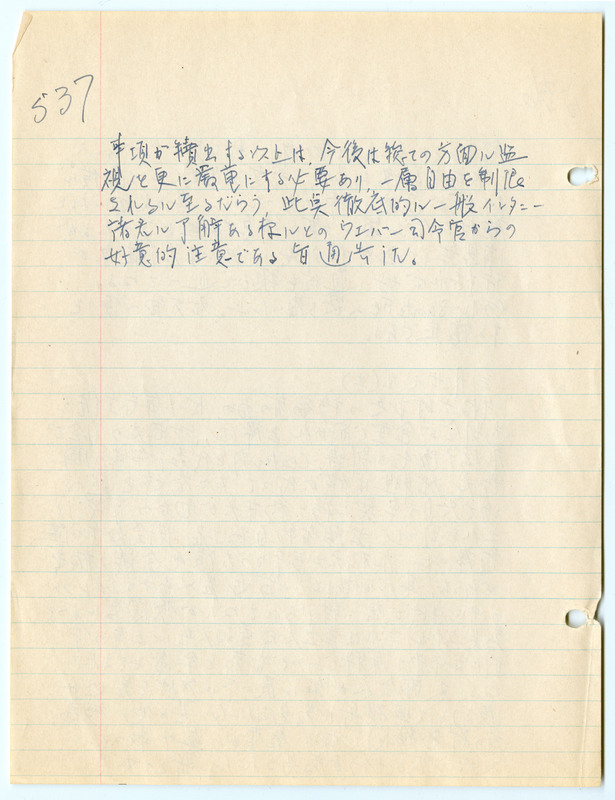 537
事項が積出する以上は、今後は総ての方面ル監
視を更に厳重にする必要あり、一層自由を制限
されるル至るだらう、此点徹底的ル一般インターニー
諸君ル了解ある様ルとのウエバー司令官からの
好意的注意である旨通告した。